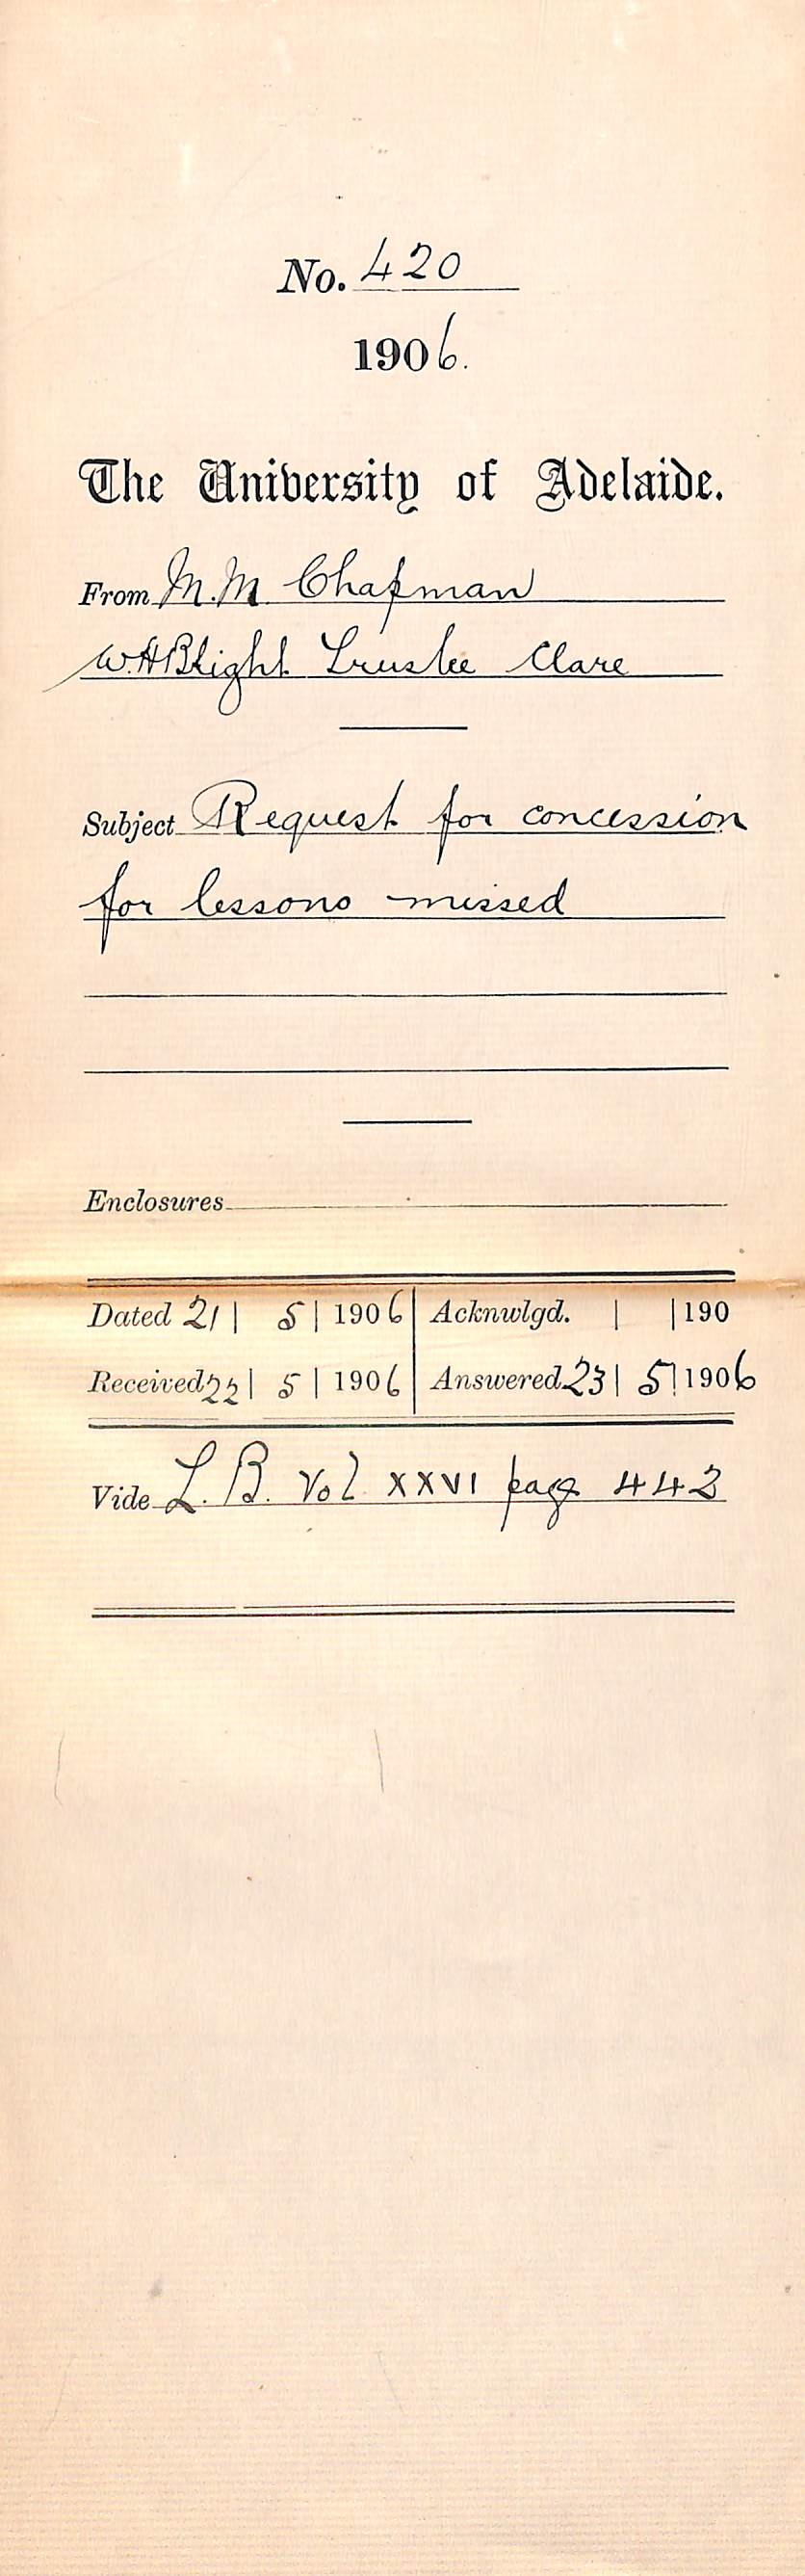 No. 420
1906.
The University of Adelaide.
From M.M Chapman
W.H Blight Trustee Clare
Subject Request for concession
for lessons missed
Enclosures
Dated 21 | 5 | 1906 Acknwlgd. | | 190
Received 22 | 5 | 1906 Answered 23 | 5 | 1906
Vide L. B. Vol XXVI page 442